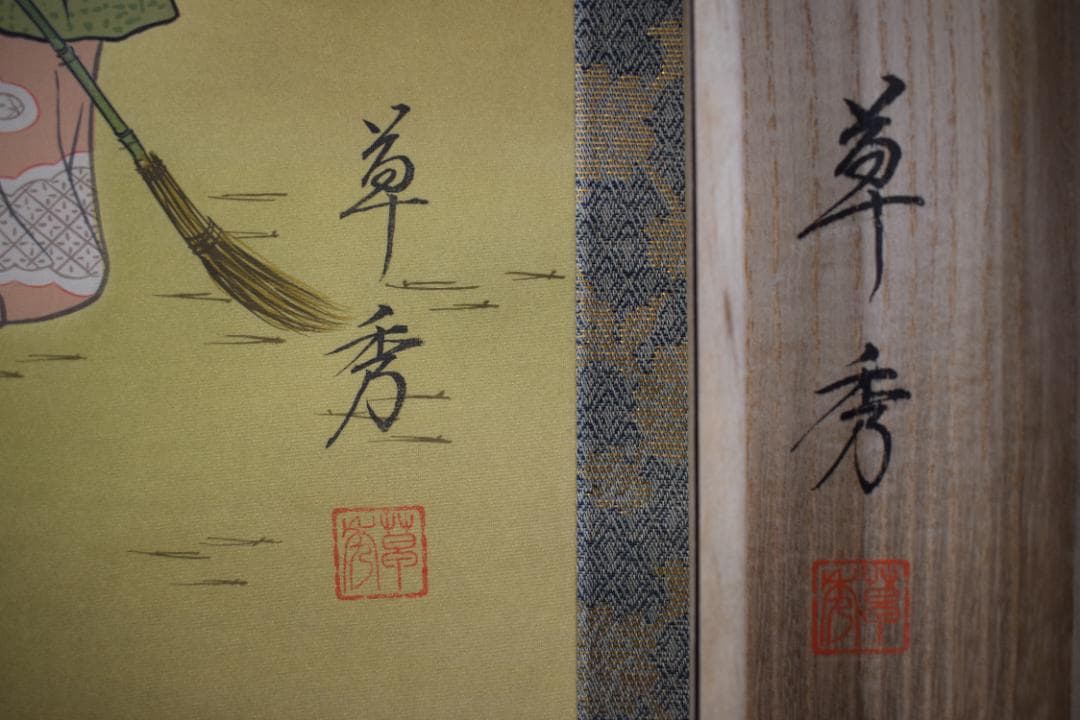 草秀
草秀
草秀
草秀